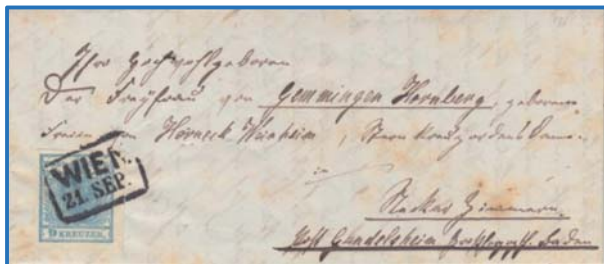 Ihro Hochwohlgeboren
Der Freyfrau von Gemmingen Hornberg, geborene
Freien von Horneck Weinheim, Stern Kreuzordens Dame.
in
Neckar Zimmern.
Post Gundelsheim Baden
WIEN.
21. SEP.
9 KREUZER